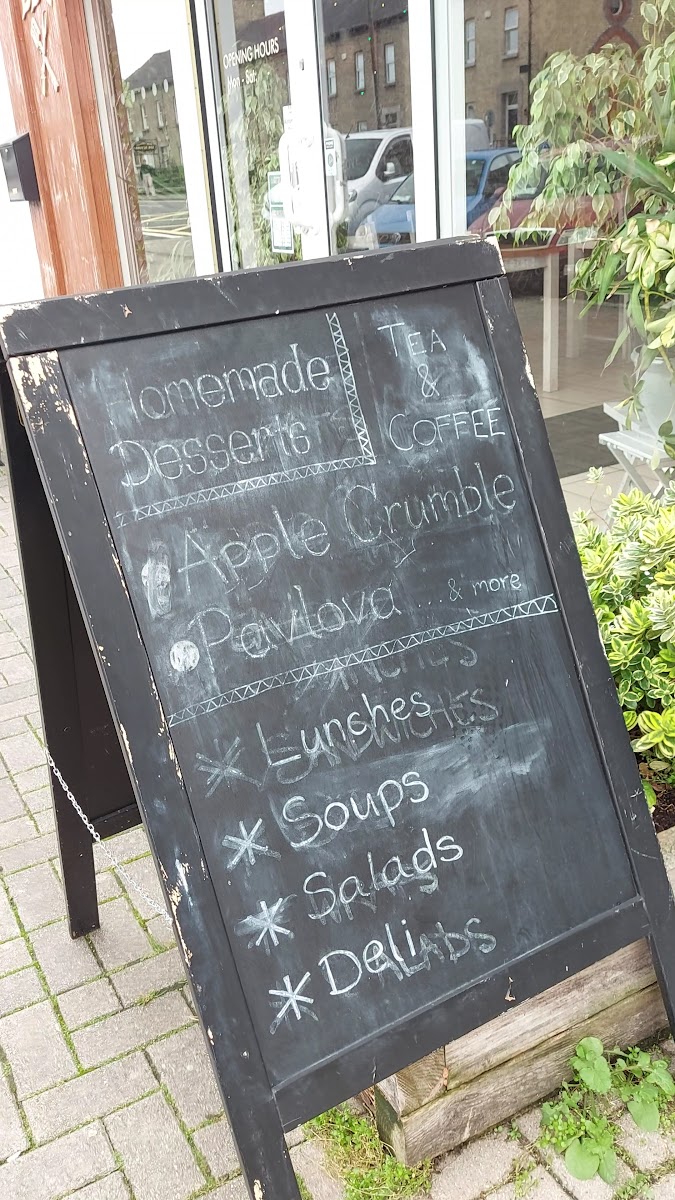 OPENING HOURS
Mon - Sat:
Homemade
Desserts
TEA
&
COFFEE
Apple Crumble
Pavlova ... & more
Lunches
SANDWICHES
* Soups
* Salads
* Deli